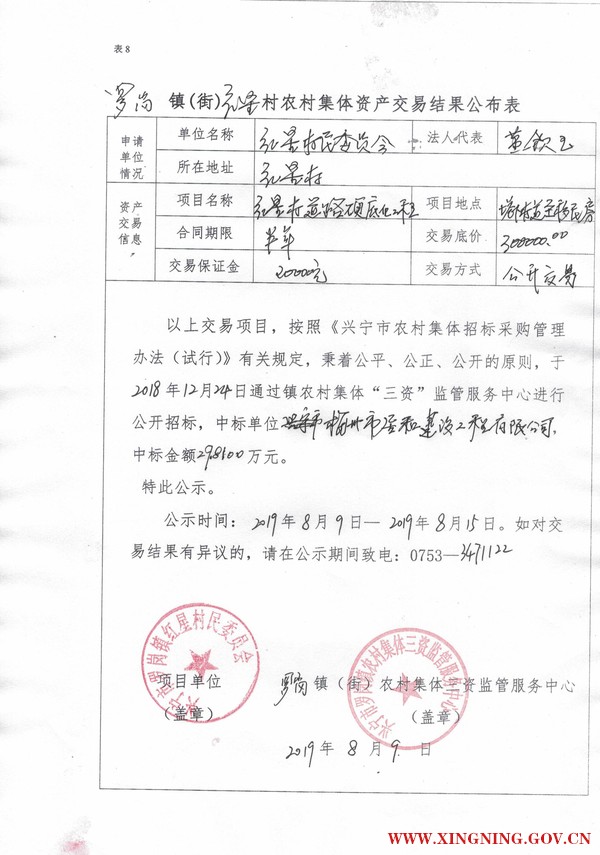 表8
罗岗 镇(街)红星村农村集体资产交易结果公布表
申请单位情况 单位名称 红星村民委员会 法人代表
所在地址 红星村
资产交易信息 项目名称 红星村道路硬底化工程 项目地点
合同期限 半年 交易底价 300000.00
交易保证金 20000元 交易方式 公开交易
以上交易项目，按照《兴宁市农村集体招标采购管理
办法（试行）》有关规定，秉着公平、公正、公开的原则，于
2018年12月24日通过镇农村集体“三资”监管服务中心进行
公开招标，中标单位 梅州市 建设工程有限公司，
中标金额298100万元。
特此公示。
公示时间：2019年8月9日—2019年8月15日。如对交
易结果有异议的，请在公示期间致电：0753—3471122
兴宁市罗岗镇红星村民委员会
兴宁市罗岗镇农村集体三资监管服务中心
项目单位 罗岗镇（街）农村集体三资监管服务中心
（盖章） （盖章）
2019年8月9日
WWW.XINGNING.GOV.CN